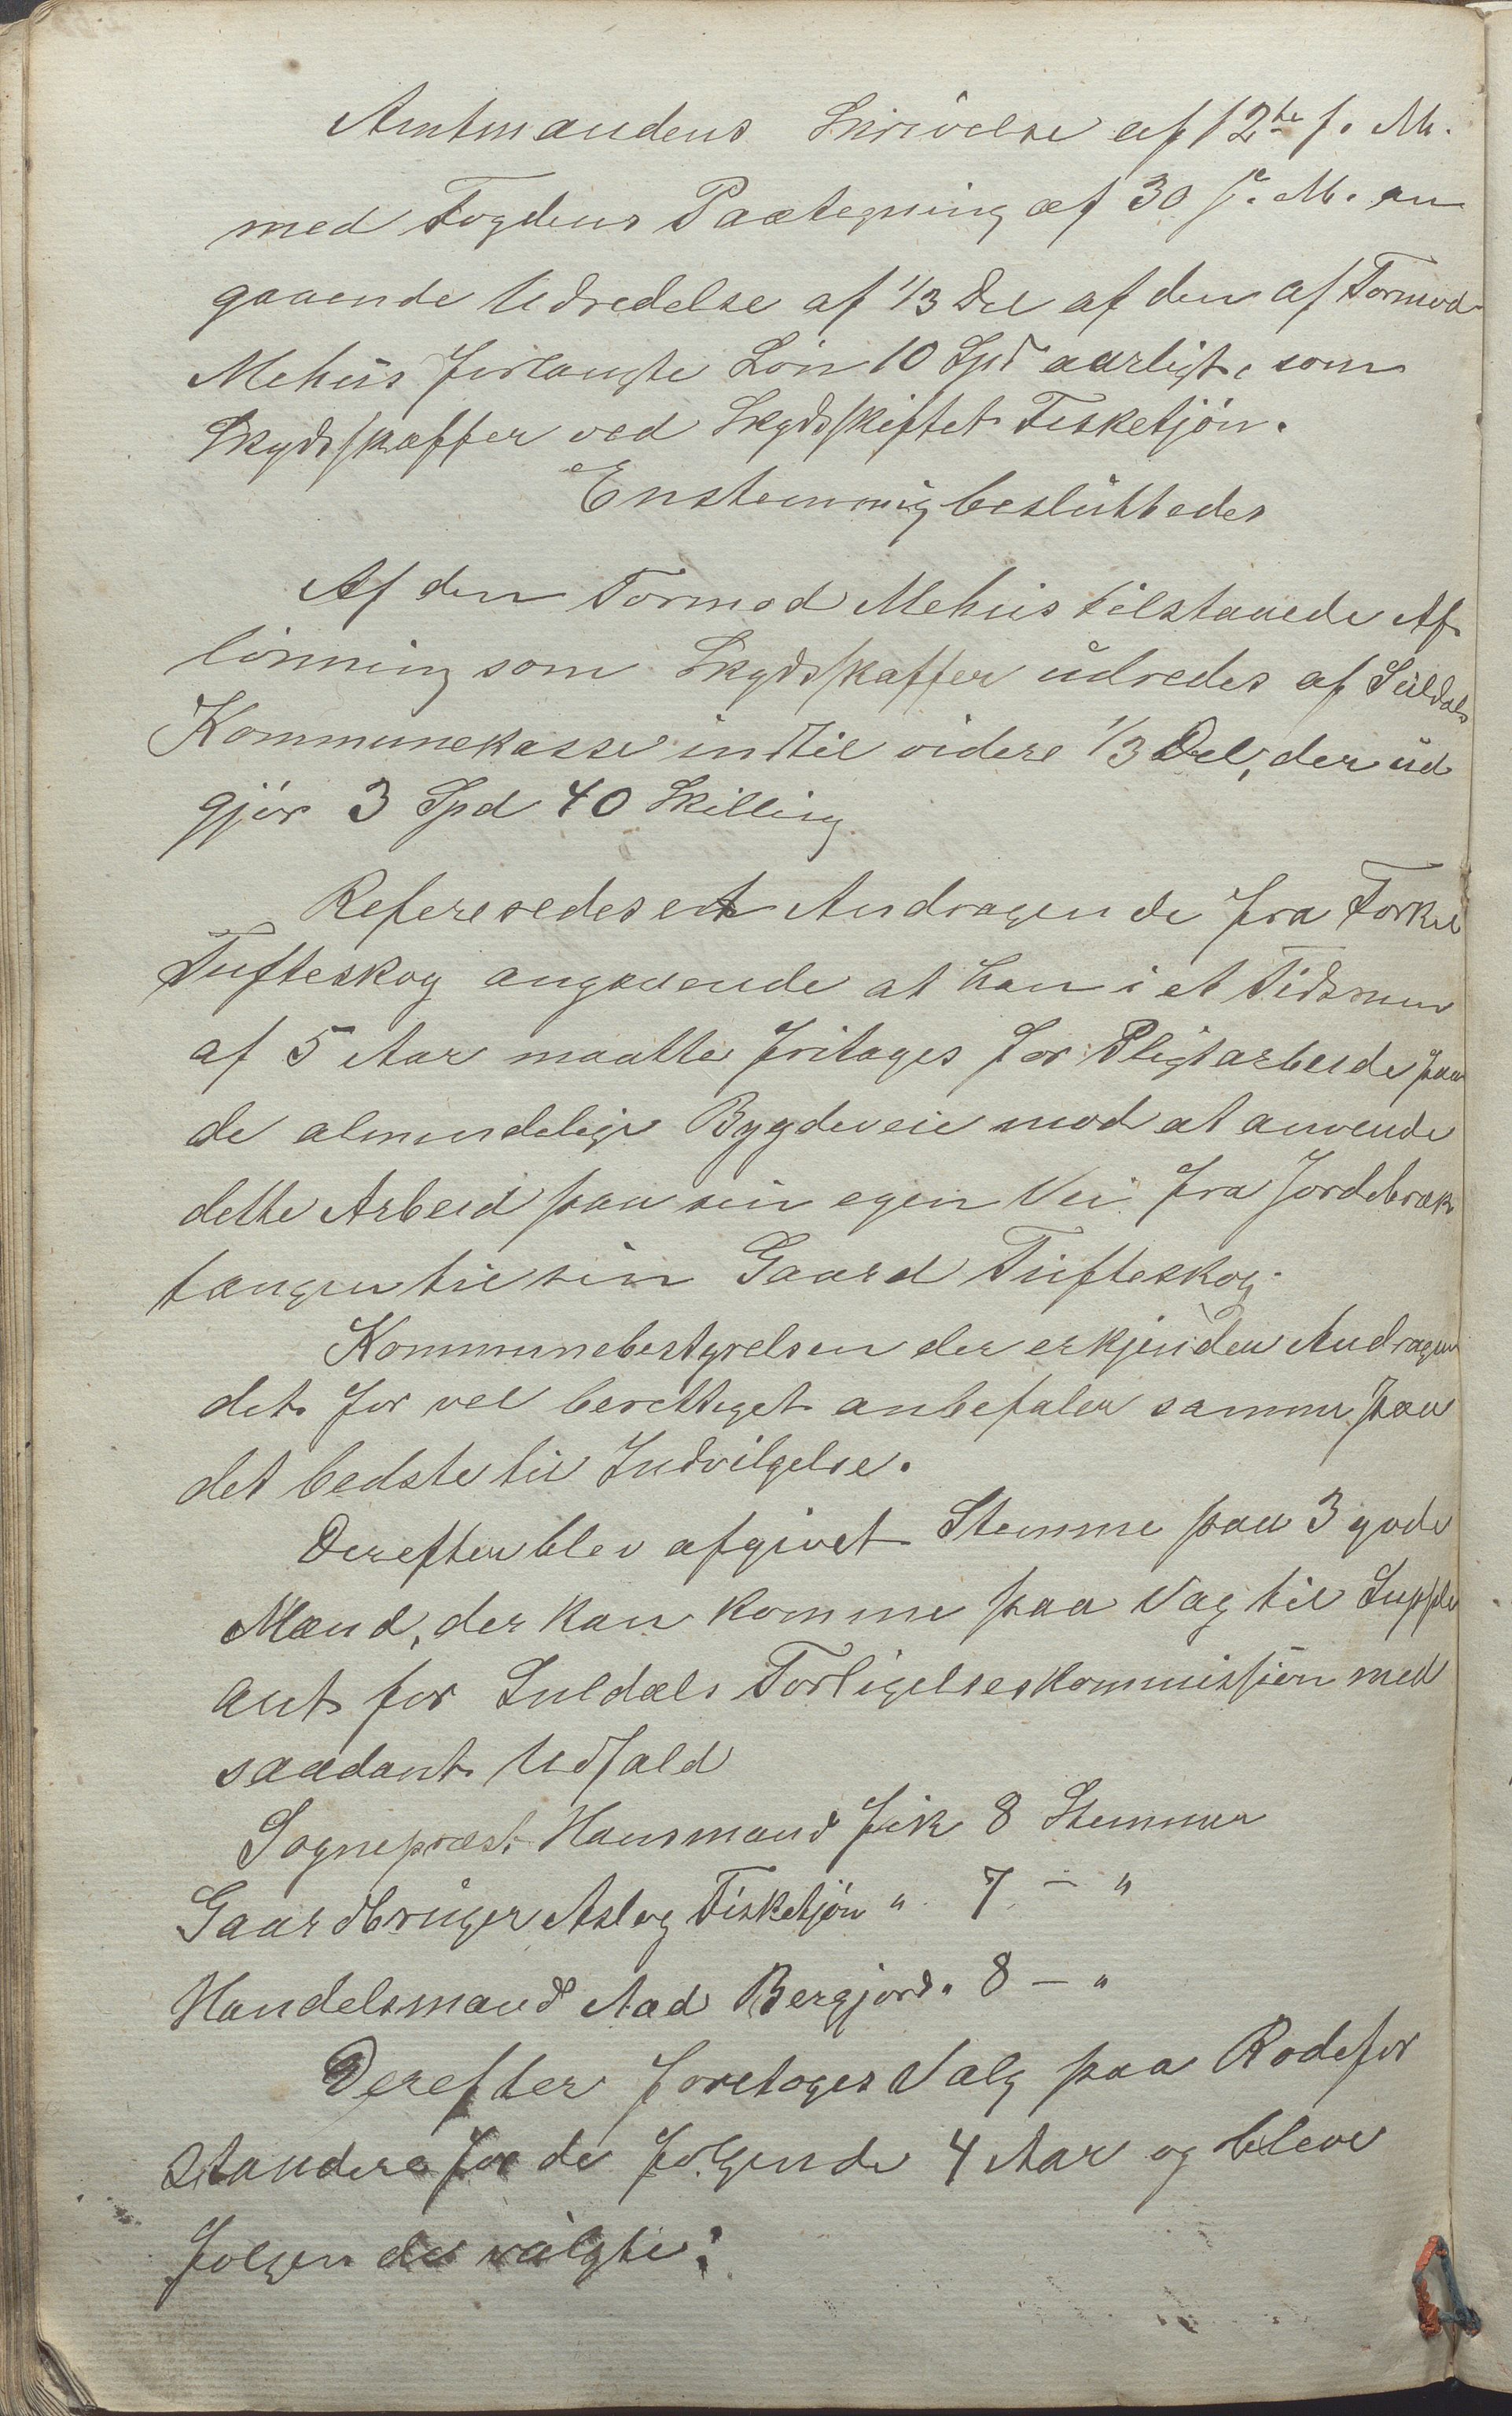 Amtmandens Skrivelse af 12te f. M.
med Fogdens Paategning af 30 f. M. an
gaaende Udredelse af 1/3 Del af den af Tormod
Mehus forlangte Lön 10 Spd aarligt, som
Skydsskaffer ved Skydsskiftet Fisketjön.
Enstemmig besluttedes
Af den Tormod Mehus tilstaaede Af
lönning som Skydsskaffer udredes af Suldals
Kommunekasse indtil videre 1/3 Del, der ud
gjör 3 Spd 40 Skilling
Refereredes et Andragende fra Torkel
Tufteskog angaaende at han i et Tidsrum
af 5 Aar maatte fritages for Pligtarbeide paa
de almindelige Bygdeveie mod at anvende
dette Arbeid paa sin egen Vei fra Jordebræk
tangen til sin Gaard Tufteskog.
Kommunebestyrelsen der erkjender Andragen
det for vel berettiget anbefaler samme paa
det bedste til Indvilgelse.
Derefter blev afgivet Stemme paa 3 gode
Mænd, der kan komme paa Valg til Supple
ant for Suldals Forligelseskommission med
saadant Udfald
Sogneprest Hansmand fik 8 Stemmer
Gaardbruger Aslag Fisketjön " 7 — "
Handelsmand Aad Bergjord " 8 — "
Derefter foretoges Valg paa Rodefor
standere for de følgende 4 Aar og bleve
følgende valgte: